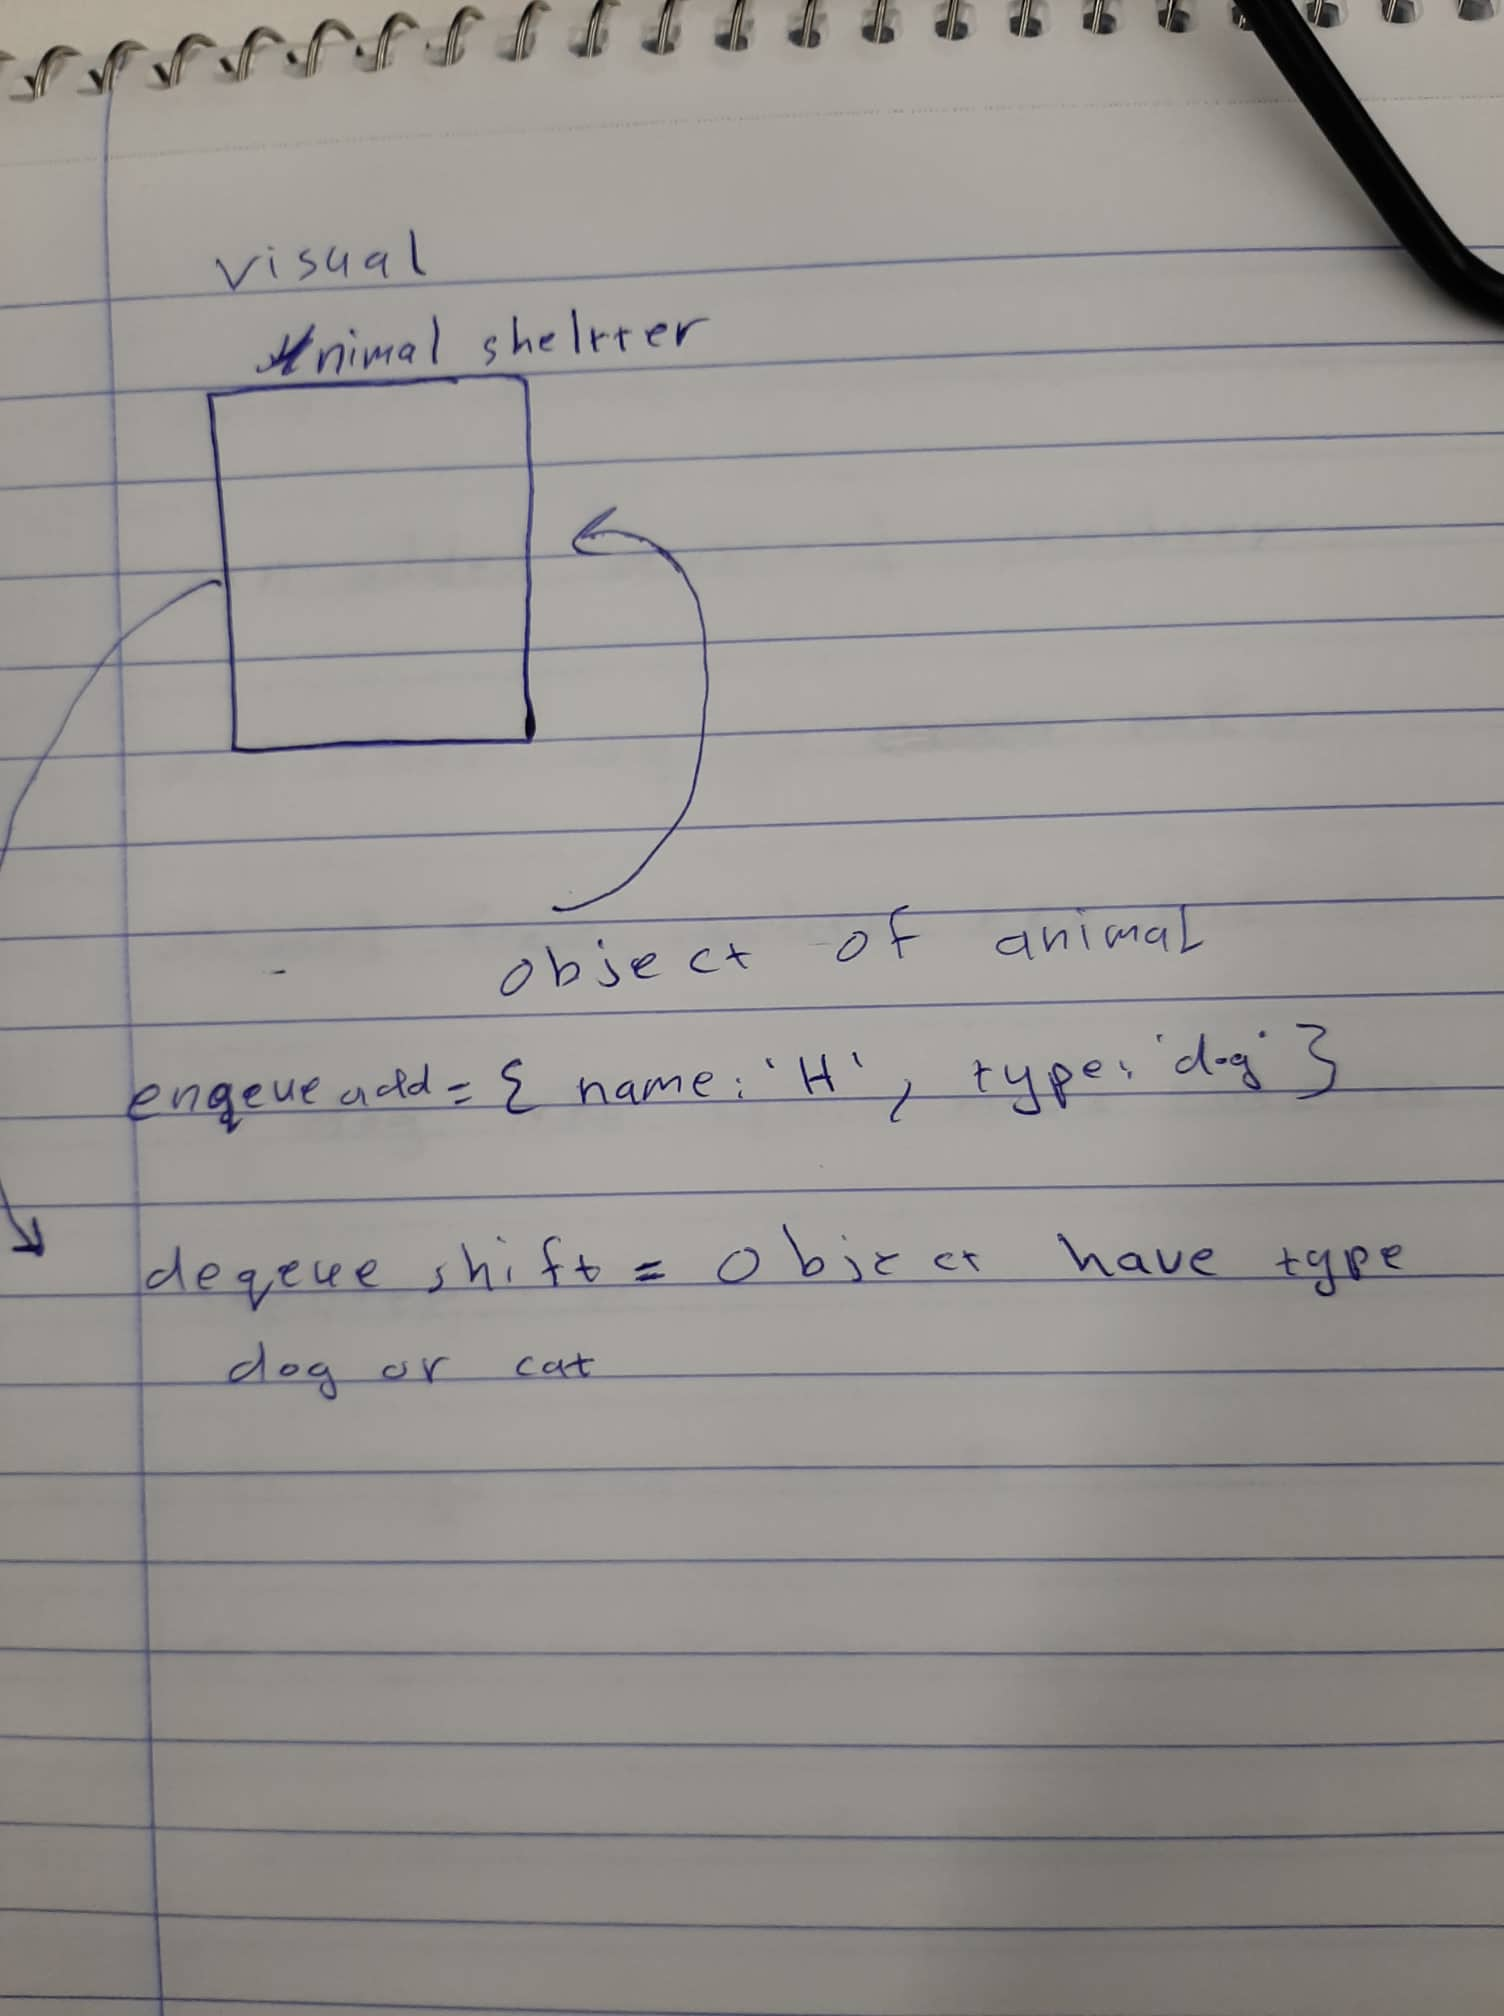 visual
Animal sheltter
object of animal
enqeue add = { name: 'H', type: 'dog' }
deqeue shift = object have type
dog or cat